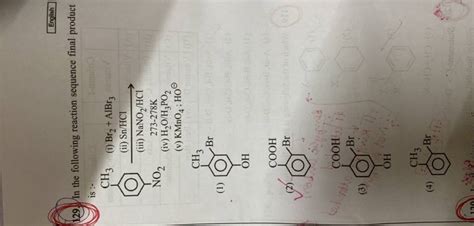 English
129. In the following reaction sequence final product
is :-
CH3
NO2
(i) Br2 + AlBr3
(ii) Sn/HCl
(iii) NaNO2/HCl
273-278K
(iv) H2O/H3PO2
(v) KMnO4 ; HO⊖
(1)
CH3
Br
OH
(2)
COOH
Br
(3)
COOH
Br
OH
(4)
CH3
Br